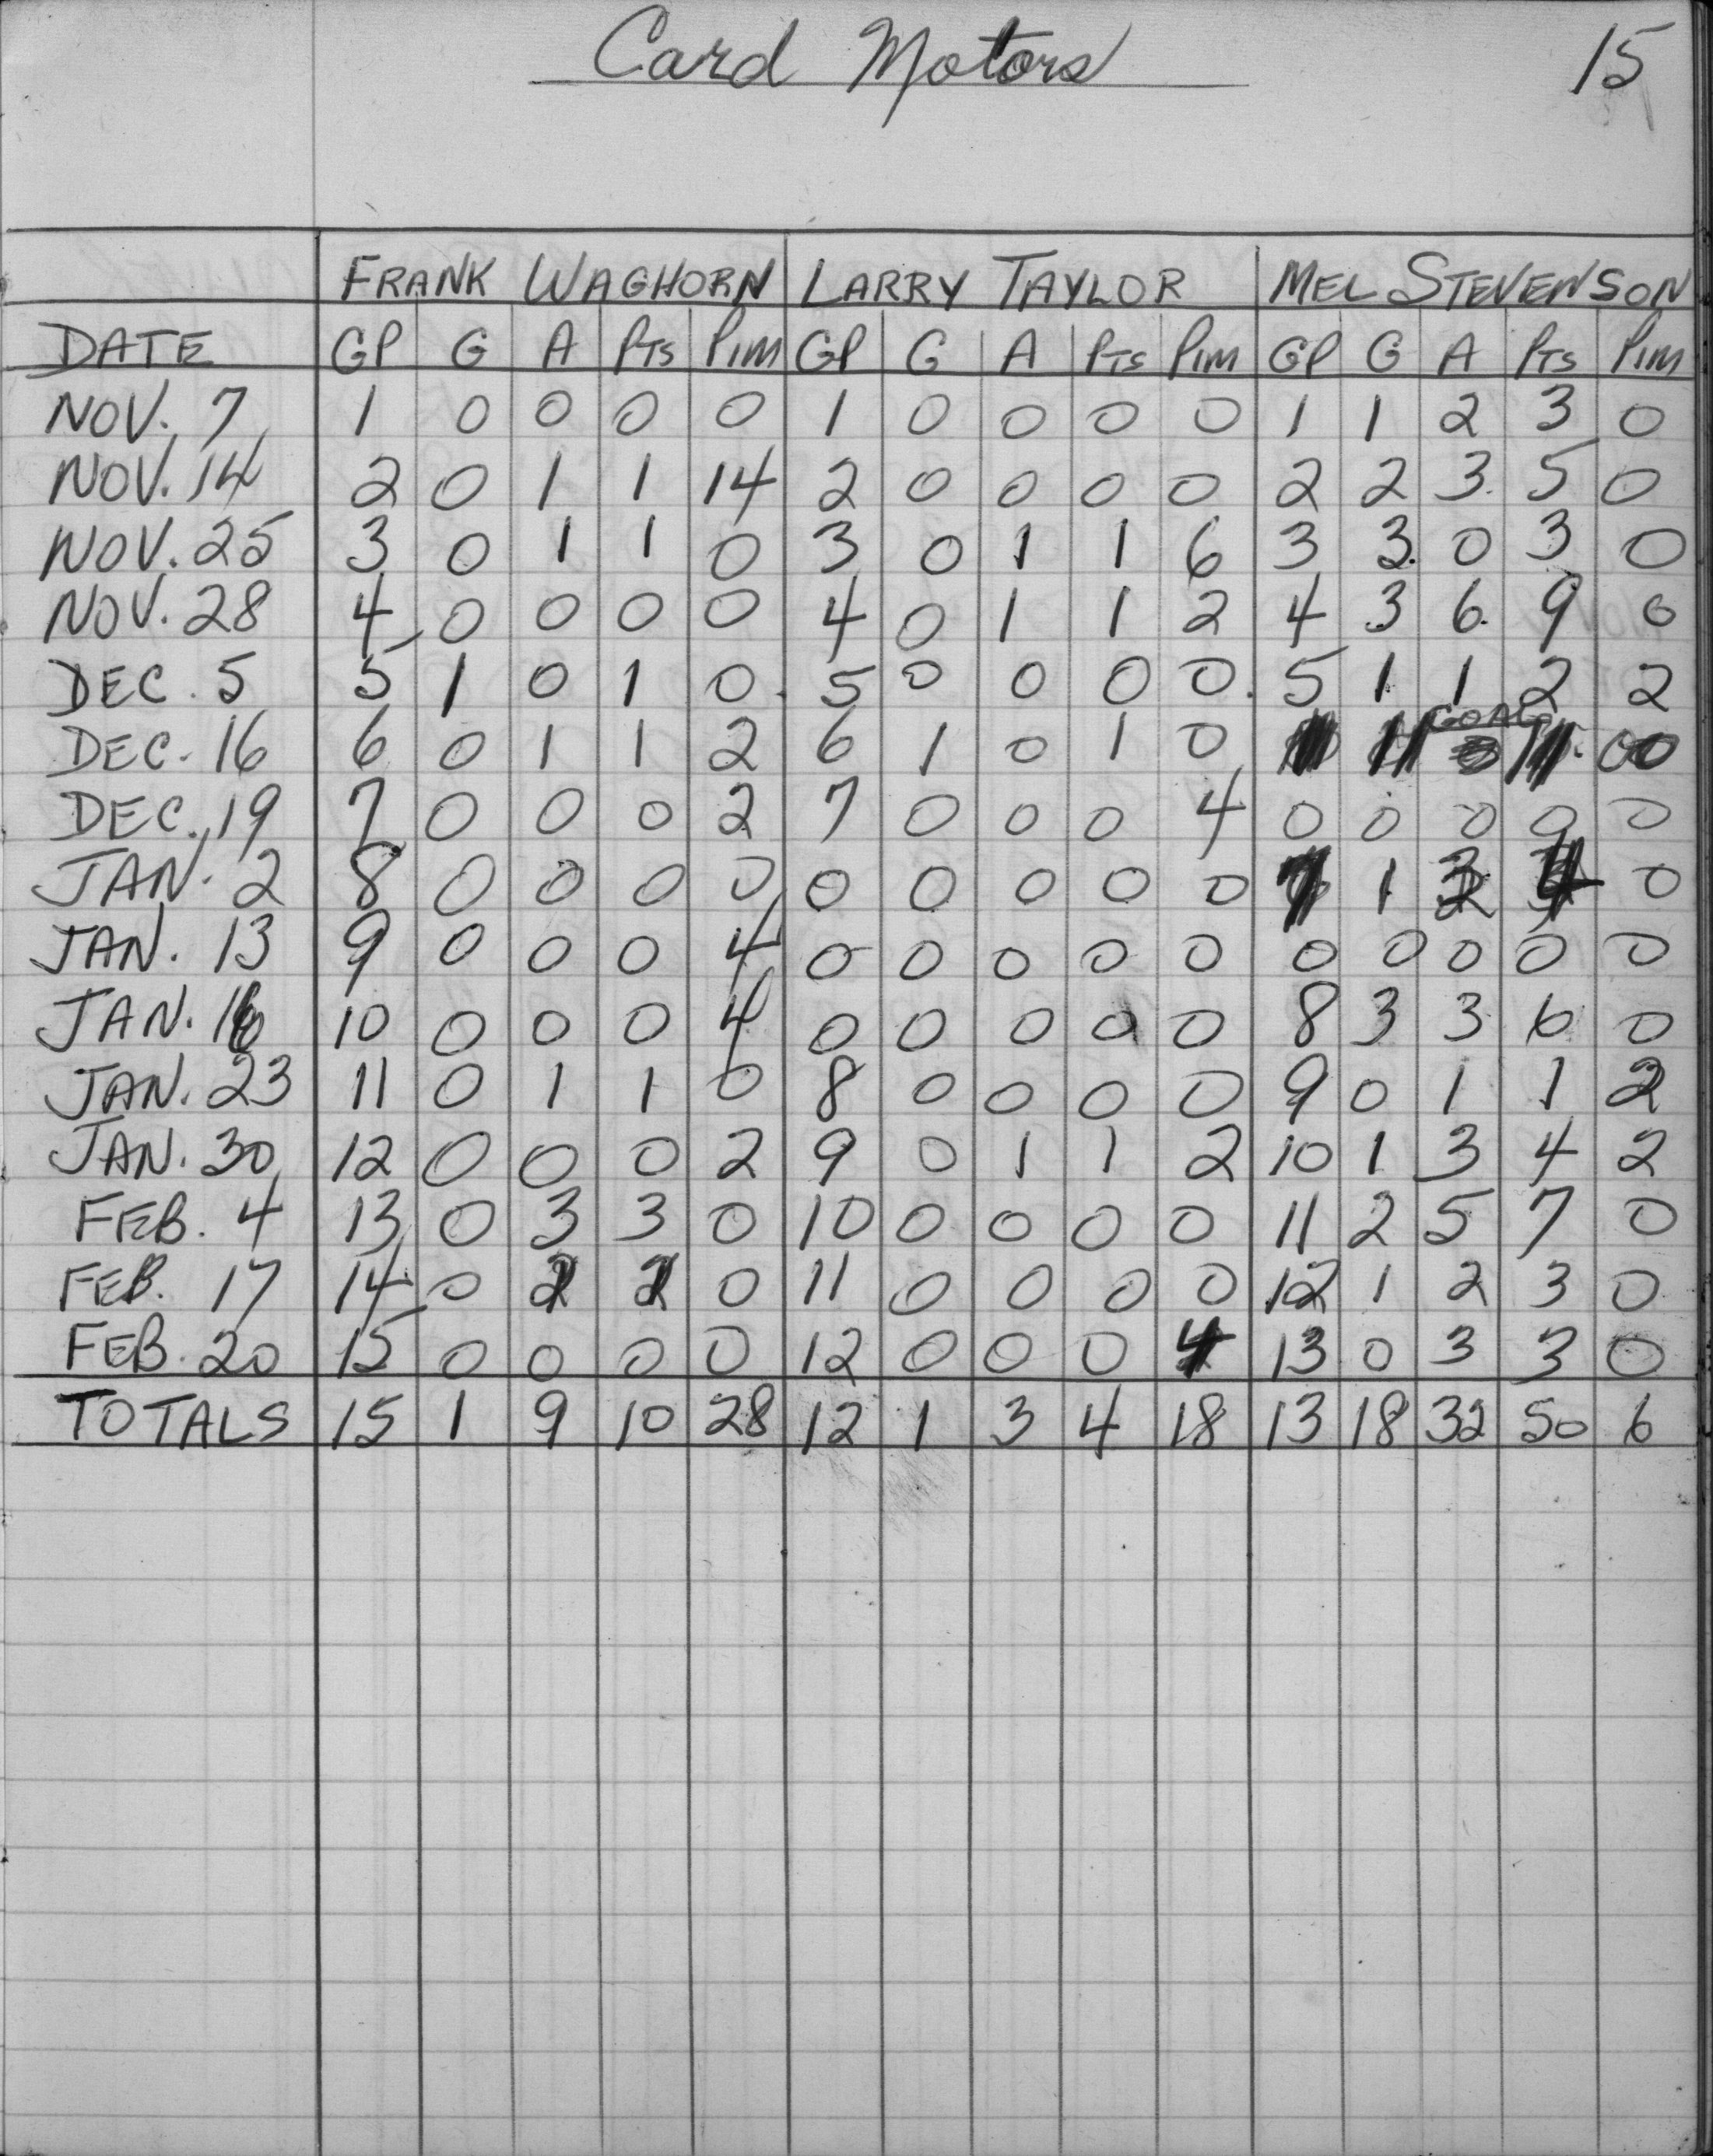 Card Motors 15
FRANK WAGHORN LARRY TAYLOR MEL STEVENSON
DATE GP G A PTS PIM GP G A PTS PIM GP G A PTS PIM
NOV. 7 1 0 0 0 0 1 0 0 0 0 1 1 2 3 0
NOV. 14 2 0 1 1 14 2 0 0 0 0 2 2 3 5 0
NOV. 25 3 0 1 1 0 3 0 1 1 6 3 3 0 3 0
NOV. 28 4 0 0 0 0 4 0 1 1 2 4 3 6 9 0
DEC. 5 5 1 0 1 0 5 0 0 0 0 5 1 1 2 2
DEC. 16 6 0 1 1 2 6 1 0 1 0 GOAL
DEC. 19 7 0 0 0 2 7 0 0 0 4 0 0 0 0 0
JAN. 2 8 0 0 0 0 0 0 0 0 0 7 1 4 0
JAN. 13 9 0 0 0 4 0 0 0 0 0 0 0 0 0 0
JAN. 16 10 0 0 0 4 0 0 0 0 0 8 3 3 6 0
JAN. 23 11 0 1 1 0 8 0 0 0 0 9 0 1 1 2
JAN. 30 12 0 0 0 2 9 0 1 1 2 10 1 3 4 2
FEB. 4 13 0 3 3 0 10 0 0 0 0 11 2 5 7 0
FEB. 17 14 0 0 11 0 0 0 0 12 1 2 3 0
FEB. 20 15 0 0 0 0 12 0 0 0 4 13 0 3 3 0
TOTALS 15 1 9 10 28 12 1 3 4 18 13 18 32 50 6